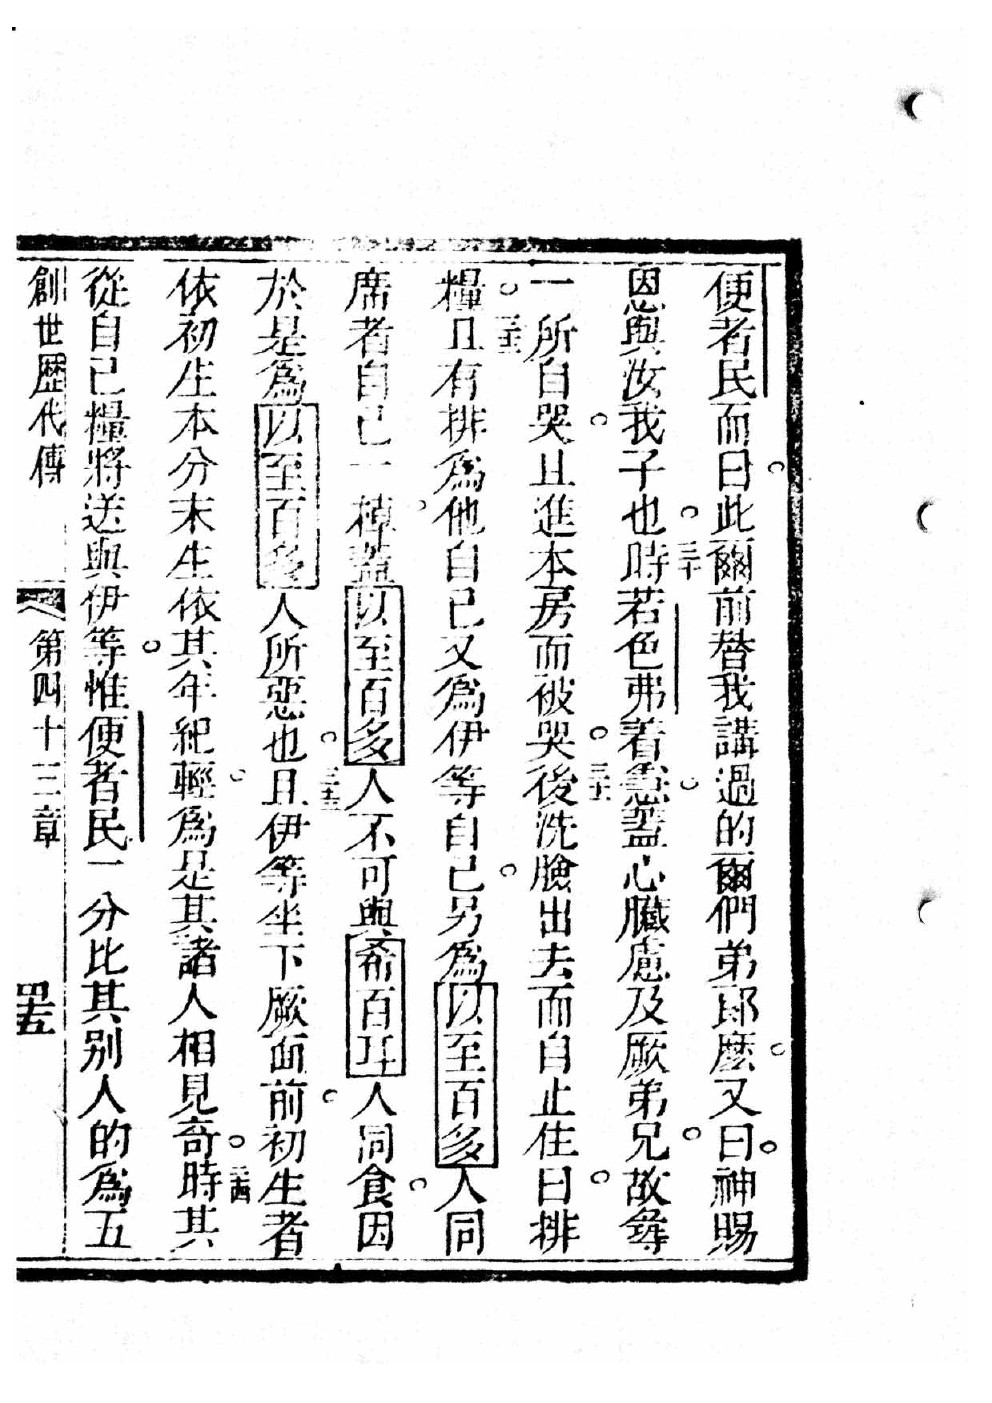 便者民而曰此爾前替我講過的爾們弟郎麽又曰神賜
恩與汝我子也三十時若色弗着急蓋心臟慮及厥弟兄故尋
一所自哭且進本房而被哭三十一後洗臉出去而自止住曰排
糧三十二且有排為他自己又為伊等自己另為以至百多人同
席者自己一棹蓋以至百多人不可與希百耳人同食因
於是為以至百多人所惡也三十三且伊等坐下厥面前初生者
依初生本分末生依其年紀輕為是其諸人相見奇三十四時其
從自己糧將送與伊等惟便者民一分比其别人的為五
創世歷代傳 第四十三章